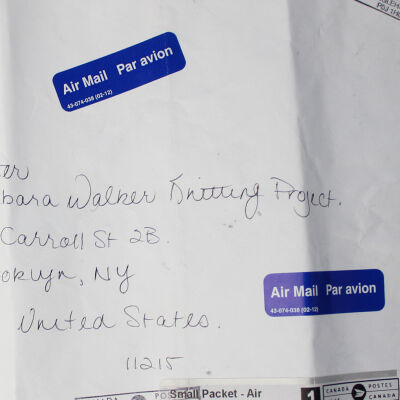 Air Mail Par avion
43-074-038 (02-12)
bara Walker Knitting Project.
Carroll St 2B.
oklyn, NY
United States.
11215
Air Mail Par avion
43-074-038 (02-12)
Small Packet - Air
1
CANADA POSTES
POSTES CANADA
CANADA